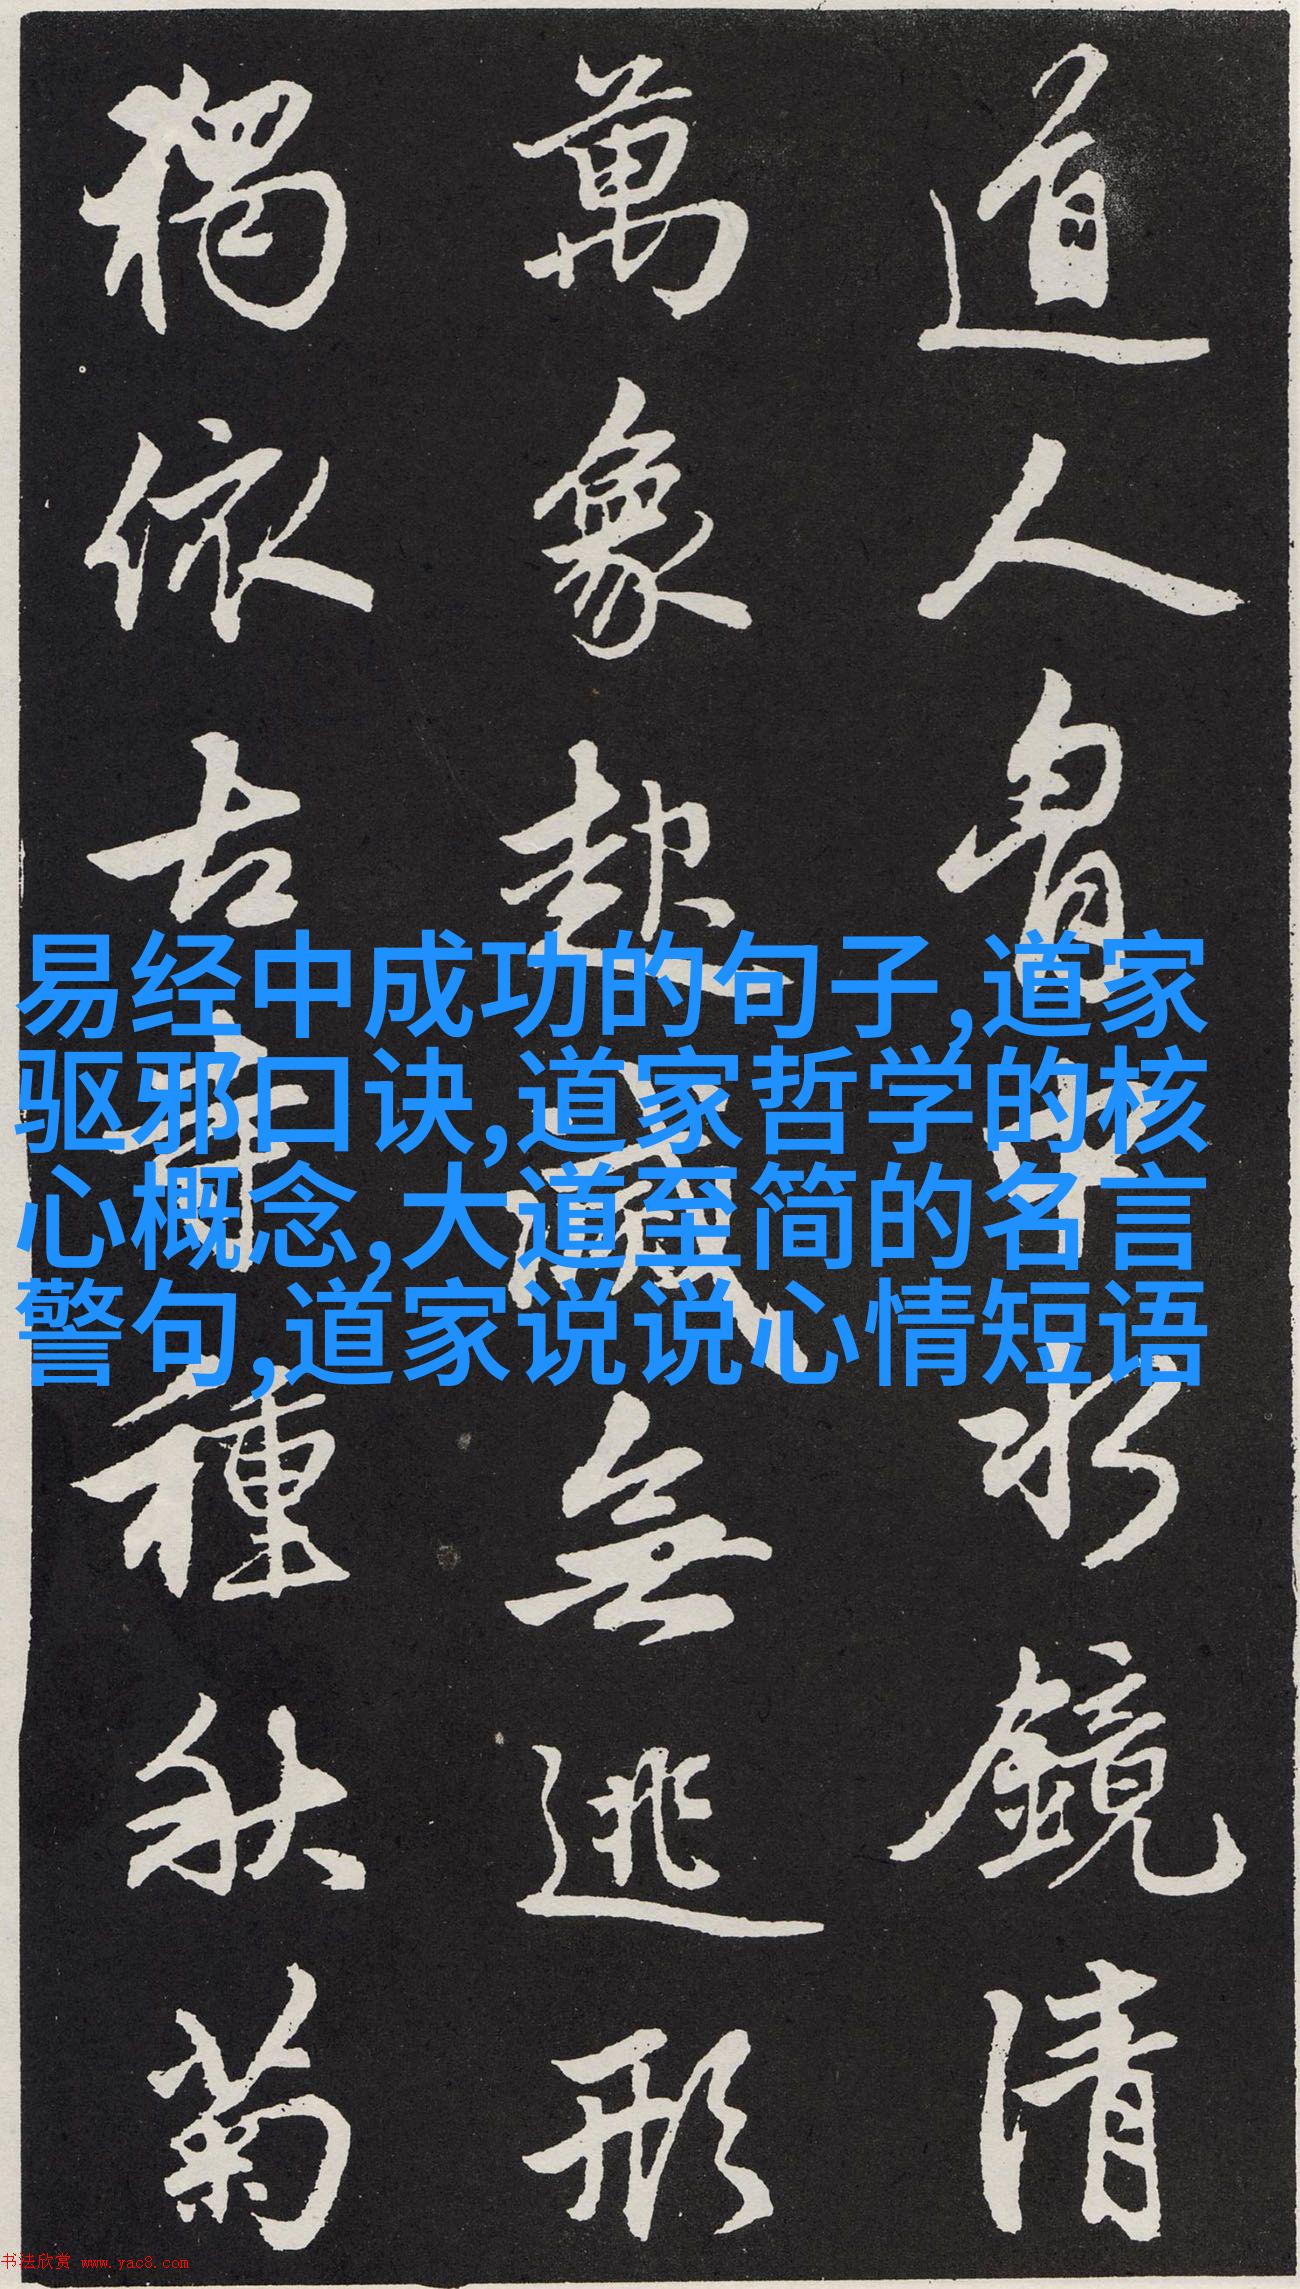 道人胷中水鏡清
萬象起滅無逃形
獨依古寺種秋菊
易经中成功的句子,道家
驱邪口诀,道家哲学的核
心概念,大道至简的名言
警句,道家说说心情短语
书法欣赏 www.yac8.com